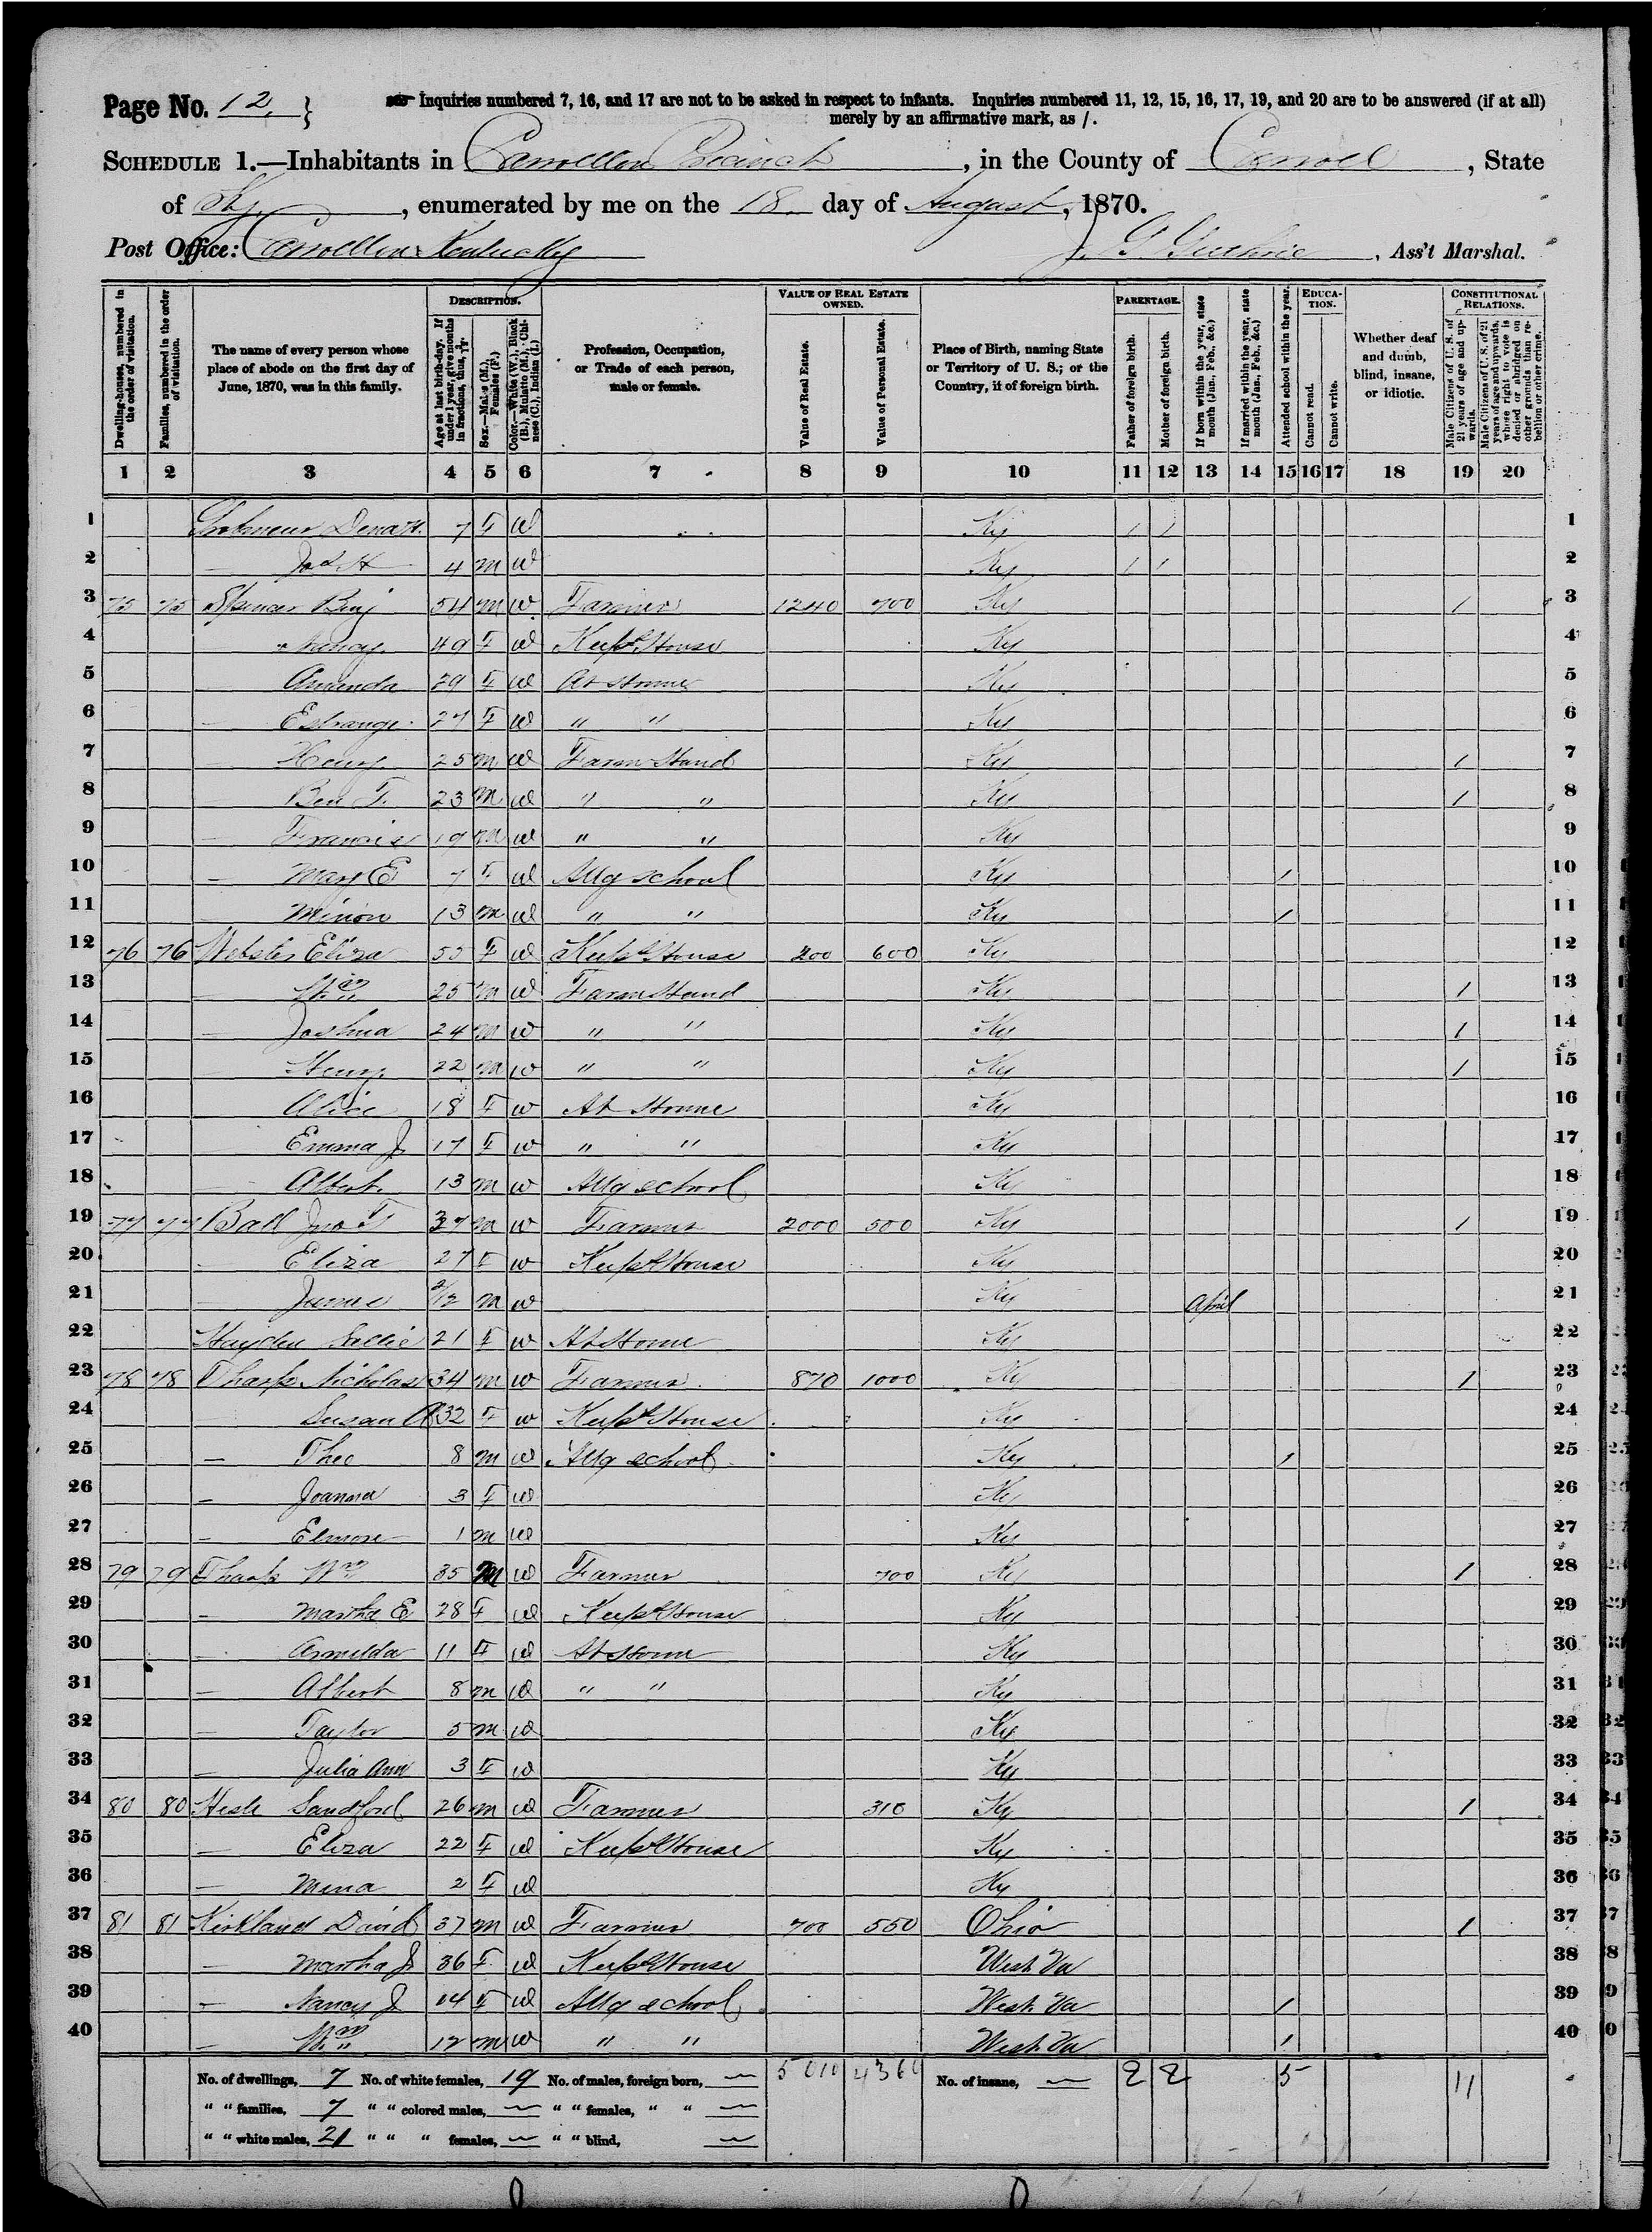 Page No. 12.
Inquiries numbered 7, 16, and 17 are not to be asked in respect to infants. Inquiries numbered 11, 12, 15, 16, 17, 19, and 20 are to be answered (if at all)
merely by an affirmative mark, as /.
SCHEDULE 1.—Inhabitants in Carrollton Precinct, in the County of Carroll, State
of Ky., enumerated by me on the 18. day of August, 1870.
Post Office: Carrollton Kentucky J. G. Guthrie, Ass't Marshal.
Dwelling-houses, numbered in the order of visitation.
Families, numbered in the order of visitation.
The name of every person whose place of abode on the first day of June, 1870, was in this family.
DESCRIPTION.
Age at last birth-day. If under 1 year, give months in fractions, thus, 3/12.
Sex.—Males (M.), Females (F.)
Color.—White (W.), Black (B.), Mulatto (M.), Chinese (C.), Indian (I.)
Profession, Occupation, or Trade of each person, male or female.
VALUE OF REAL ESTATE OWNED.
Value of Real Estate.
Value of Personal Estate.
Place of Birth, naming State or Territory of U. S.; or the Country, if of foreign birth.
PARENTAGE.
Father of foreign birth.
Mother of foreign birth.
If born within the year, state month (Jan., Feb., &c.)
If married within the year, state month (Jan., Feb., &c.)
Attended school within the year.
EDUCATION.
Cannot read.
Cannot write.
Whether deaf and dumb, blind, insane, or idiotic.
CONSTITUTIONAL RELATIONS.
Male Citizens of U. S. of 21 years of age and upwards.
Male Citizens of U. S. of 21 years of age and upwards, whose right to vote is denied or abridged on other grounds than rebellion or other crime.
1 2 3 4 5 6 7 8 9 10 11 12 13 14 15 16 17 18 19 20
1 7 F W Ky / / 1
2 — Jos H 4 M W Ky / / 2
3 75 75 Spencer Benj 54 M W Farmer 1240 700 Ky / 3
4 — Nancy 49 F W Keeps House Ky 4
5 — Amanda 29 F W At Home Ky 5
6 — 27 F W " " Ky 6
7 — Henry 25 M W Farm Hand Ky / 7
8 — Ben T. 23 M W " " Ky / 8
9 — Francis 19 M W " " Ky 9
10 — Mary E 7 F W Attg school Ky / 10
11 — 13 M W " " Ky / 11
12 76 76 Webster Eliza 55 F W Keeps House 200 600 Ky 12
13 — Wm 25 M W Farm Hand Ky / 13
14 — Joshua 24 M W " " Ky / 14
15 — Henry 22 M W " " Ky / 15
16 — Alice 18 F W At Home Ky 16
17 — Emma J. 17 F W " " Ky 17
18 — Albert 13 M W Attg school Ky 18
19 77 77 Ball Jno T 37 M W Farmer 2000 500 Ky / 19
20 — Eliza 27 F W Keeps House Ky 20
21 — James 2/12 M W Ky April 21
22 Hayden Sallie 21 F W At Home Ky 22
23 78 78 Tharp Nicholas 34 M W Farmer 870 1000 Ky / 23
24 — Susan A 32 F W Keeps House Ky 24
25 — Theo 8 M W Attg school Ky / 25
26 — Joanna 3 F W Ky 26
27 — Elmore 1 M W Ky 27
28 79 79 Tharp Wm 35 M W Farmer 700 Ky / 28
29 — Martha E 28 F W Keeps House Ky 29
30 — Armilda 11 F W At Home Ky 30
31 — Albert 8 M W " " Ky 31
32 — Taylor 5 M W Ky 32
33 — Julia Ann 3 F W Ky 33
34 80 80 Sandford 26 M W Farmer 310 Ky / 34
35 — Eliza 22 F W Keeps House Ky 35
36 — Mena 2 F W Ky 36
37 81 81 Kirkland David 37 M W Farmer 700 550 Ohio / 37
38 — Martha J. 36 F W Keeps House West Va 38
39 — Nancy J 14 F W Attg school West Va / 39
40 — Wm 12 M W " " West Va / 40
No. of dwellings, 7 No. of white females, 19 No. of males, foreign born, — 5010 4360 No. of insane, — 2 2 5 11
" " families, 7 " " colored males, — " " females, " " —
" " white males, 21 " " " females, — " " blind, —